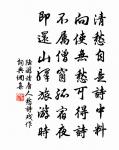 清愁自是詩中料
向使無愁可得詩
不屬僧窗孤宿夜
即還山驛旅遊時
陸游讀唐人愁詩戲作
詞典網集